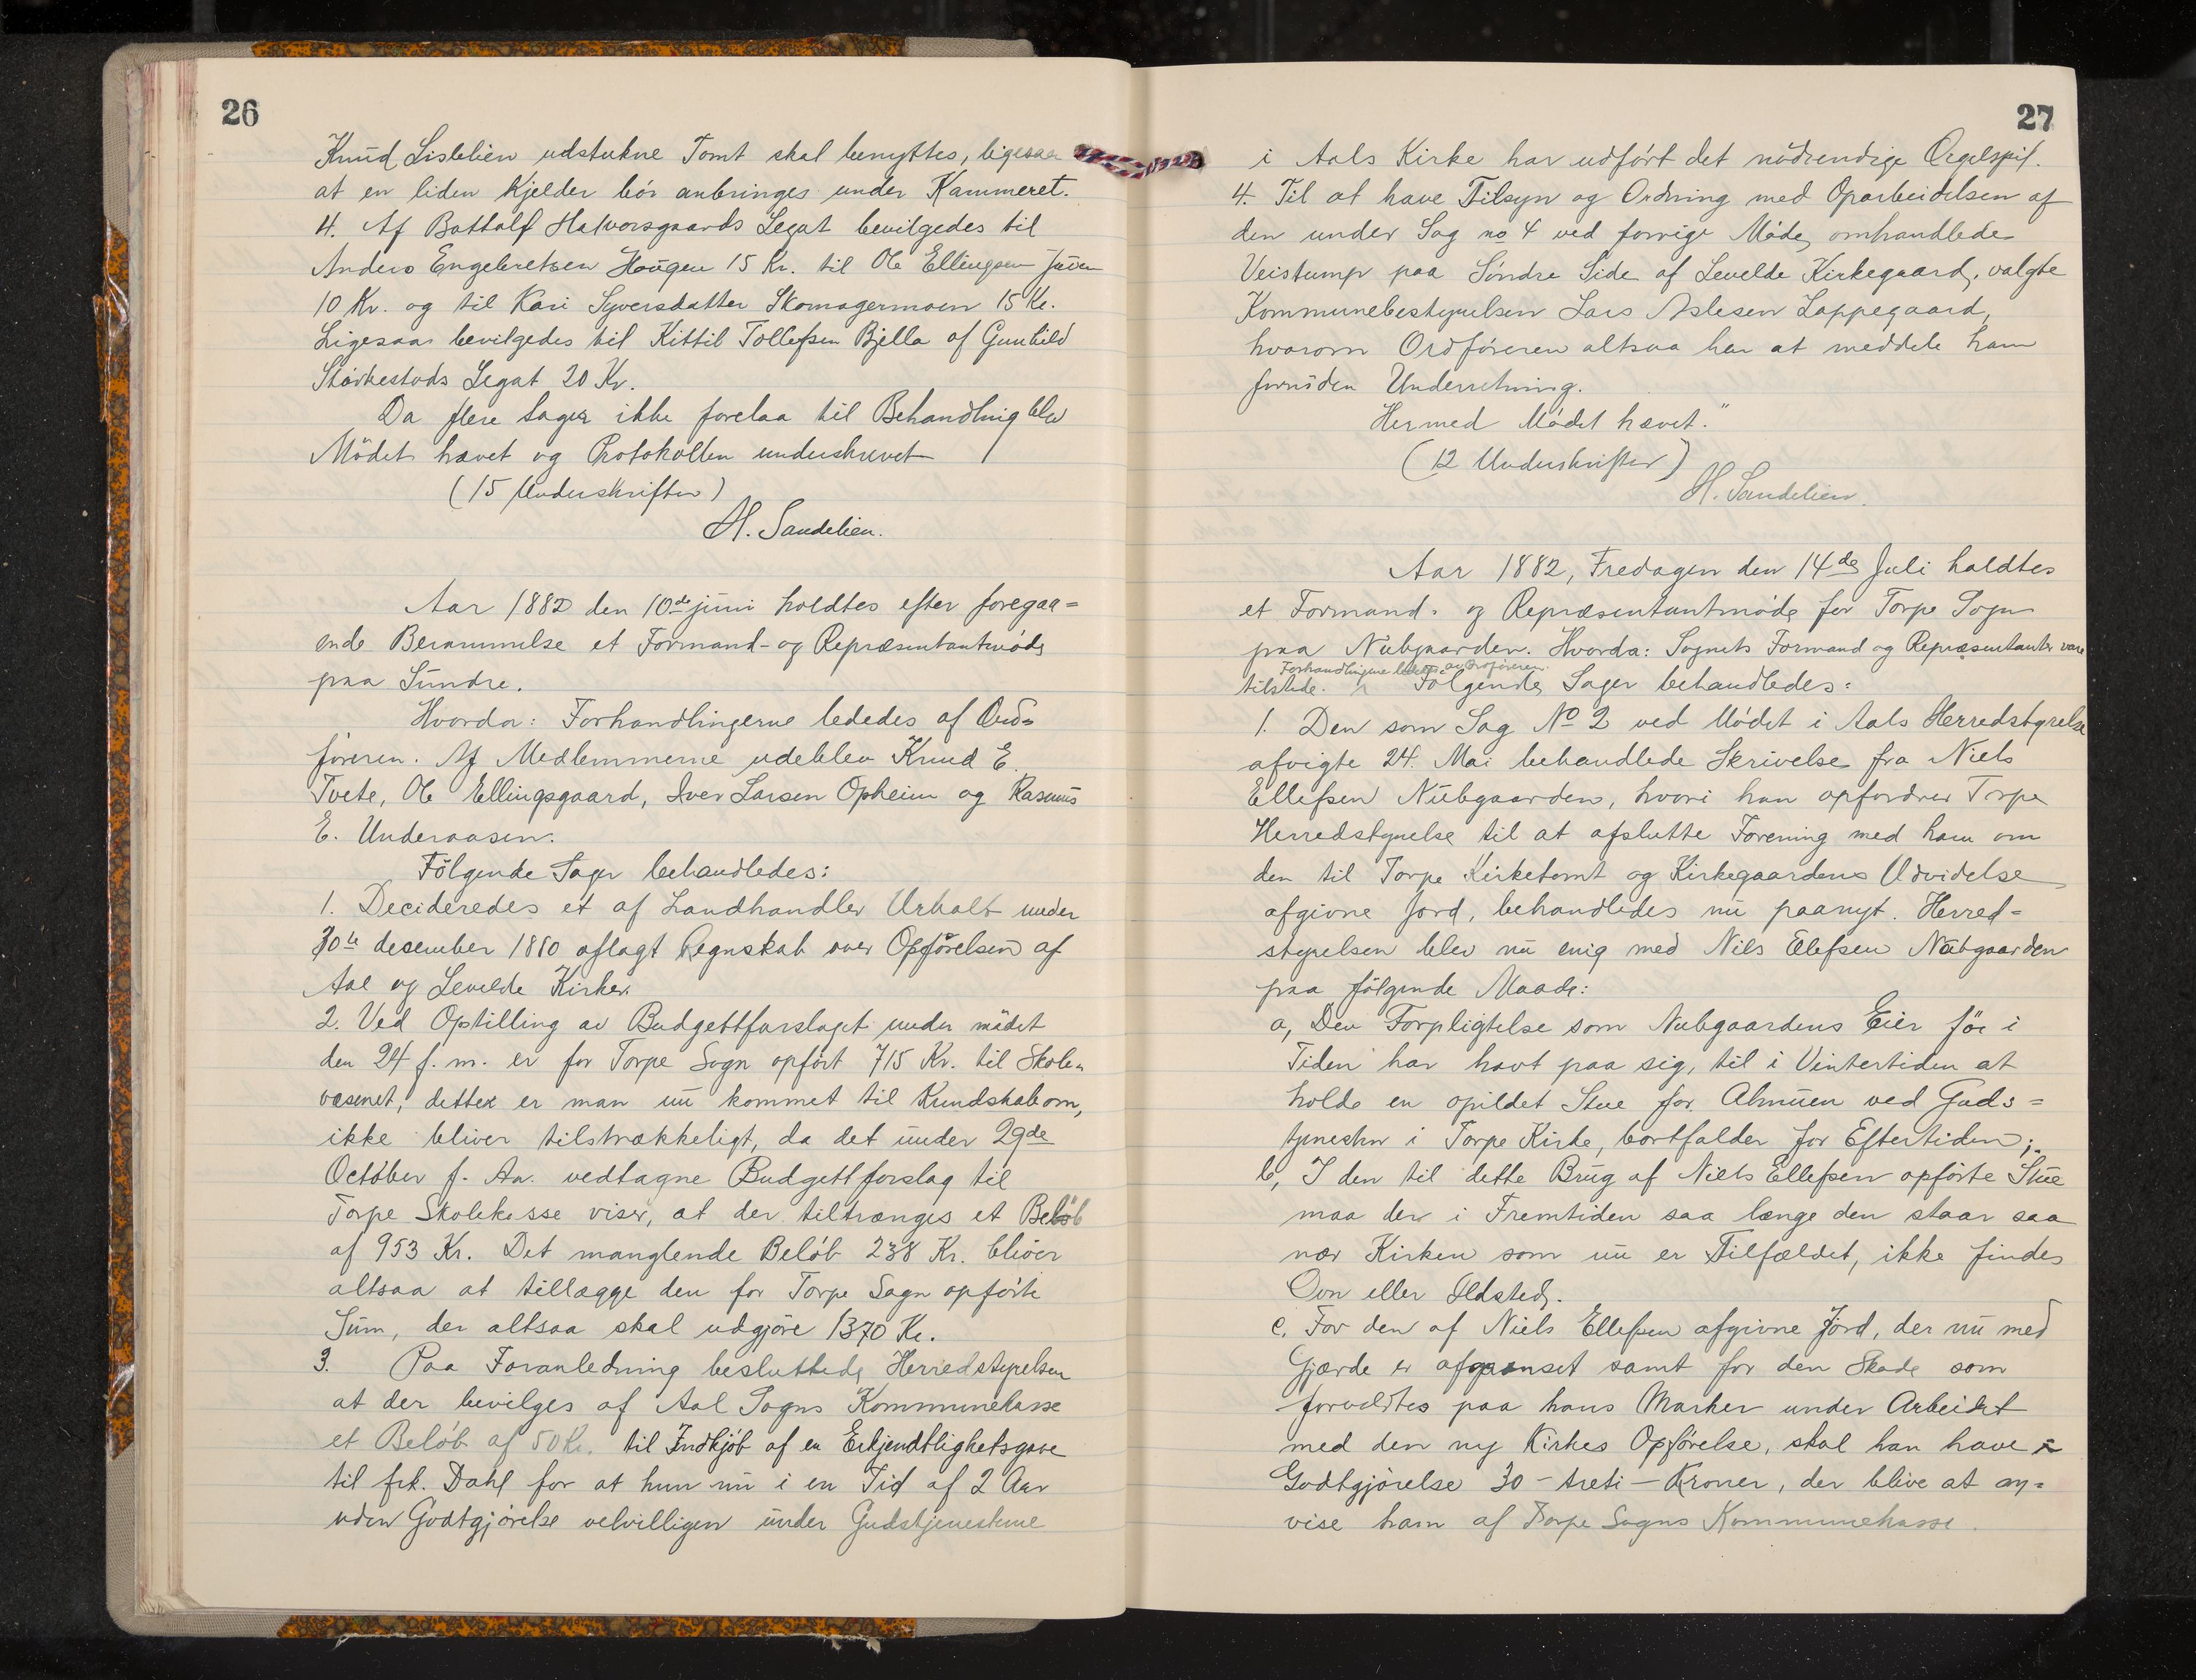 26
Knud Lislelien udstukne Tomt skal benyttes, ligesaa
at en liden Kjelder bör anbringes under Kammeret.
4. Af Bottolf Halvorsgaards Legat bevilgedes til
Anders Engebretsen Hougen 15 Kr. til Ole Ellingsen
10 Kr. og til Kari Syversdatter Skomagermoen 15 Kr.
Ligesaa bevilgedes til Kittil Tollefsen Bjella af Gunhild
Störkestads Legat 20 Kr.
Da flere Sager ikke forelaa til Behandling blev
Mödet hævet og Protokollen underskrevet
(15 Underskrifter)
H. Sandelien.
Aar 1882 den 10de juni holdtes efter foregaa=
ende Berammelse et Formand- og Repræsentantmöde
paa Sundre.
Hvorda: Forhandlingerne lededes af Ord=
föreren. Af Medlemmerne udeblev Knud E.
Tvete, Ole Ellingsgaard, Iver Larsen Opheim og Rasmus
E. Underaasen.
Fölgende Sager behandledes:
1. Decideredes et af Landhandler Urhalt under
30te desember 1880 aflagt Regnskab over Opförelsen af
Aal og Levelde Kirker.
2. Ved Opstilling av Budgettforslaget under mödet
den 24 f. m. er for Torpe Sogn opfört 715 Kr. til Skole=
væsenet, dette er man nu kommet til Kundskab om,
ikke bliver tilstrækkeligt, da det under 29de
October f. Aa. vedtagne Budgettforslag til
Torpe Skolekasse viser, at der tiltrænges et Belöb
af 953 Kr. Det manglende Belöb 238 Kr. bliver
altsaa at tillægge den for Torpe Sogn opförte
Sum, der altsaa skal udgjöre 1370 Kr.
3. Paa Foranledning besluttede Herredstyrelsen
at der bevilges af Aal Sogns Kommunekasse
et Belöb af 50 Kr. til Indkjöb af en Erkjendtlighetsgave
til frk. Dahl for at hun nu i en Tid af 2 Aar
uden Godtgjörelse velvilligen under Gudstjenesterne
27
i Aals Kirke har udfört det nödvendige Orgelspil.
4. Til at have Tilsyn og Ordning med Oparbeidelsen af
den under Sag no 4 ved forrige Möde omhandlede
Veistump paa Söndre Side af Levelde Kirkegaard, valgte
Kommunebestyrelsen Lars Aslesen Lappegaard,
hvorom Ordföreren altsaa har at meddele ham
fornöden Underretning.
Hermed Mödet hævet."
(12 Underskrifter)
H. Sandelien.
Aar 1882, Fredagen den 14de Juli holdtes
et Formand- og Repræsentantmöde for Torpe Sogn
paa Nubgaarden. Hvorda: Sognets Formand og Repræsentanter vare
Forhandlingerne lededes av Ordföreren.
tilstede. Fölgende Sager behandledes:
1. Den som Sag No 2 ved Mödet i Aals Herredstyrelse
afvigte 24. Mai behandlede Skrivelse fra Niels
Ellefsen Nubgaarden, hvori han opfordrer Torpe
Herredstyrelse til at afslutte Forening med ham om
den til Torpe Kirketomt og Kirkegaardens Udvidelse
afgivne Jord, behandledes nu paanyt. Herred=
styrelsen blev nu enig med Nils Ellefsen Nubgaarden
paa fölgende Maade:
a, Den Forpligtelse som Nubgaardens Eier för i
Tiden har havt paa sig, til i Vintertiden at
holde en opildet Stue for Almuen ved Guds=
tjenesten i Torpe Kirke, bortfalder for Eftertiden;
b, I den til dette Brug af Niels Ellefsen opförte Stue
maa der i Fremtiden saa længe den staar saa
nær Kirken som nu er Tilfældet, ikke findes
Ovn eller Ildsted.
c. For den af Niels Ellefsen afgivne Jord, der nu med
Gjærde er afgrænset samt for den Skade som
forvoldtes paa hans Marker under Arbeidet
med den ny Kirkes Opförelse, skal han have i
Godtgjörelse 30 - treti - Kroner, der blive at an=
vise ham af Torpe Sogns Kommunekasse.